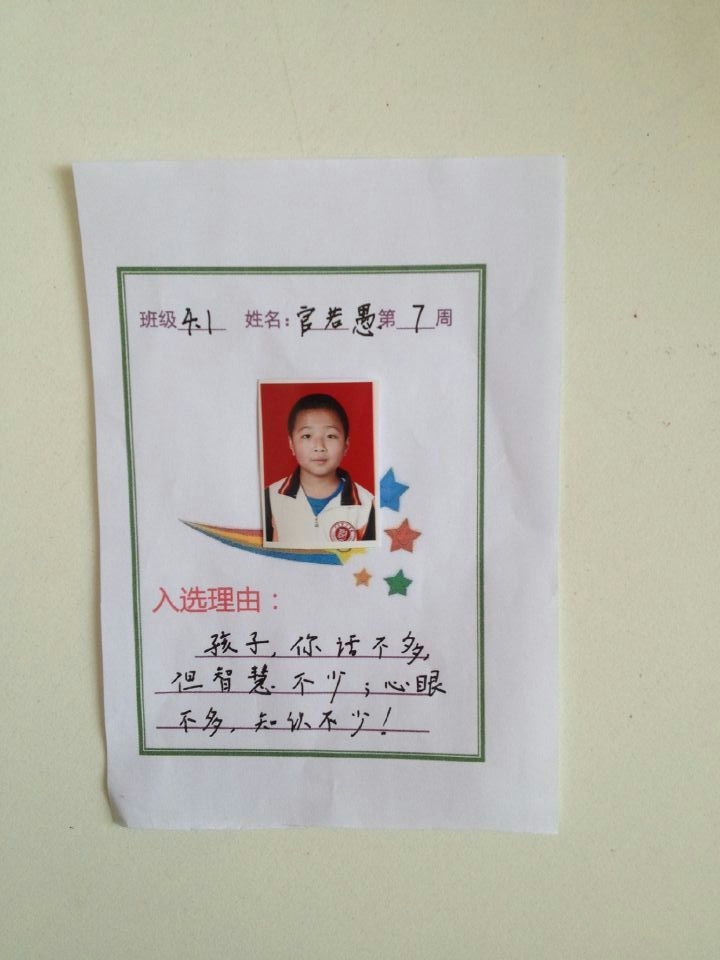 班级 4.1 姓名：官若愚 第 7 周
入选理由：
孩子，你话不多，
但智慧不少；心眼
不多，知你不少！